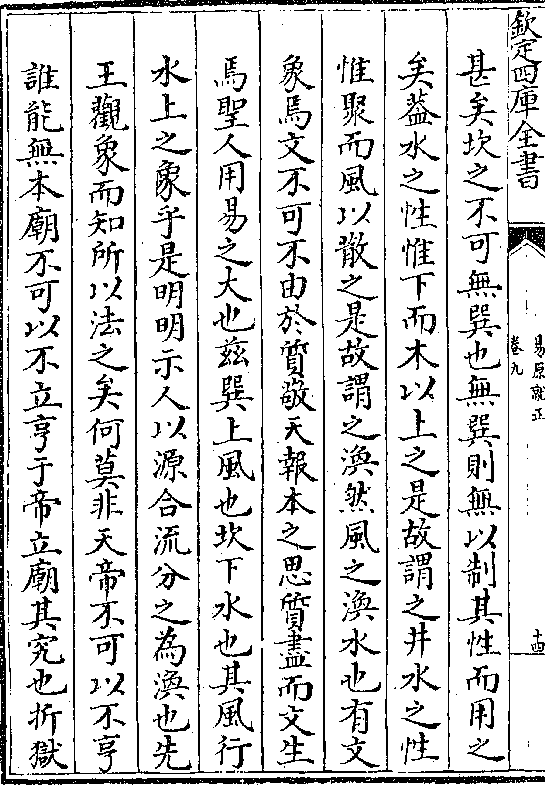 欽定四庫全書
易原就正
卷九
十四
甚矣坎之不可無巽也無巽則無以制其性而用之
矣蓋水之性惟下而木以上之是故謂之井水之性
惟聚而風以散之是故謂之渙然風之渙水也有文
象焉文不可不由於質敬天報本之思質盡而文生
焉聖人用易之大也兹巽上風也坎下水也其風行
水上之象乎是明明示人以源合流分之為渙也先
王觀象而知所以法之矣何莫非天帝不可以不亨
誰能無本廟不可以不立亨于帝立廟其究也折獄